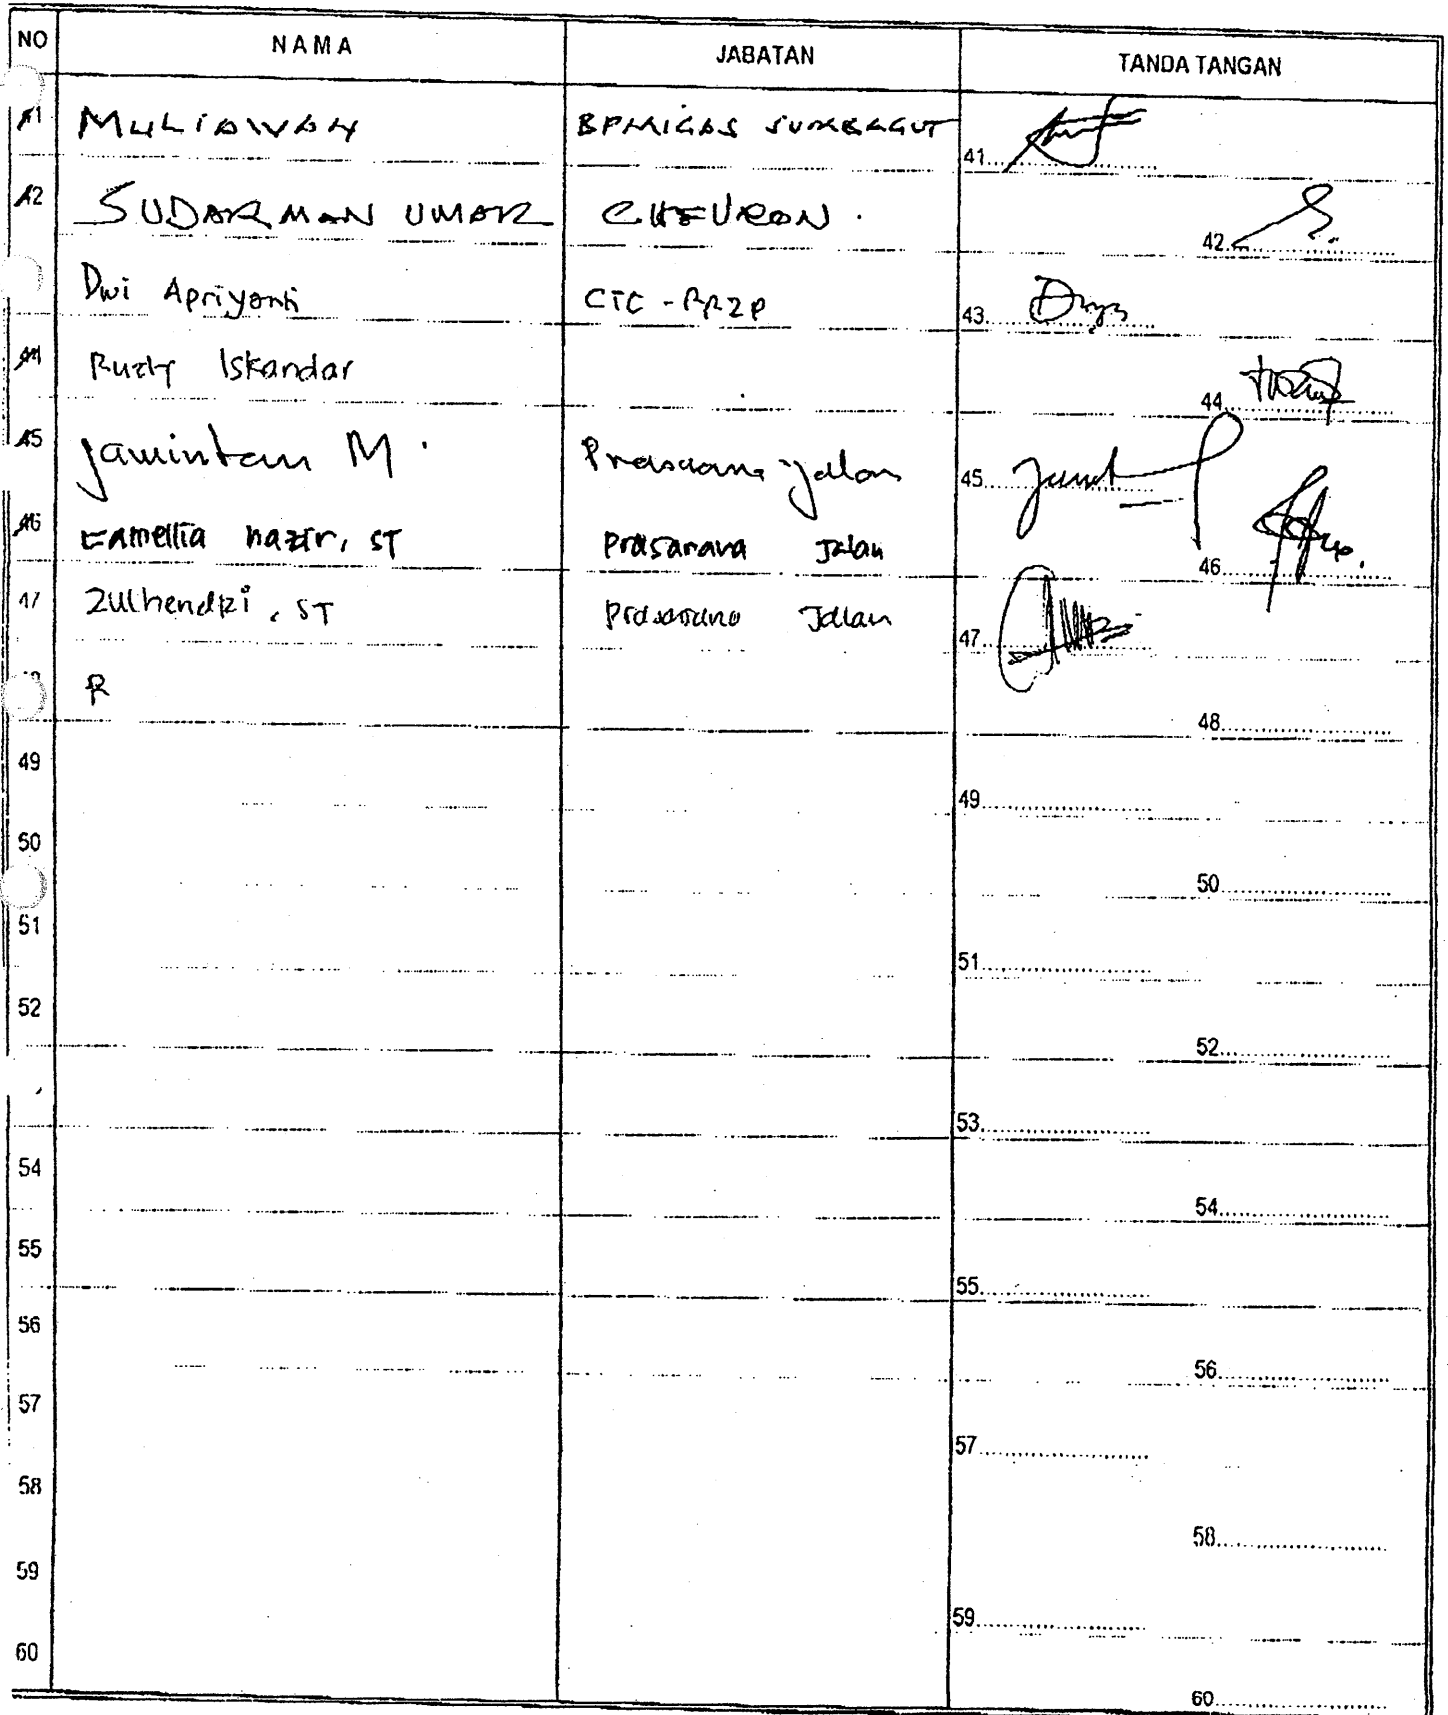 NO NAMA JABATAN TANDA TANGAN
41 MULIAWAN BPMIGAS SUMBAGUT 41
42 SUDARMAN UMAR CHEVRON. 42
Dwi Apriyanti 43
44 Rudy Iskandar 44
45 Jamintan M. Prasarana Jalan 45
46 Camellia nazir, ST Prasarana Jalan 46
47 Zulhendri, ST Prasarana Jalan 47
R 48
49 49
50 50
51 51
52 52
53
54 54
55 55
56 56
57 57
58 58
59 59
60 60